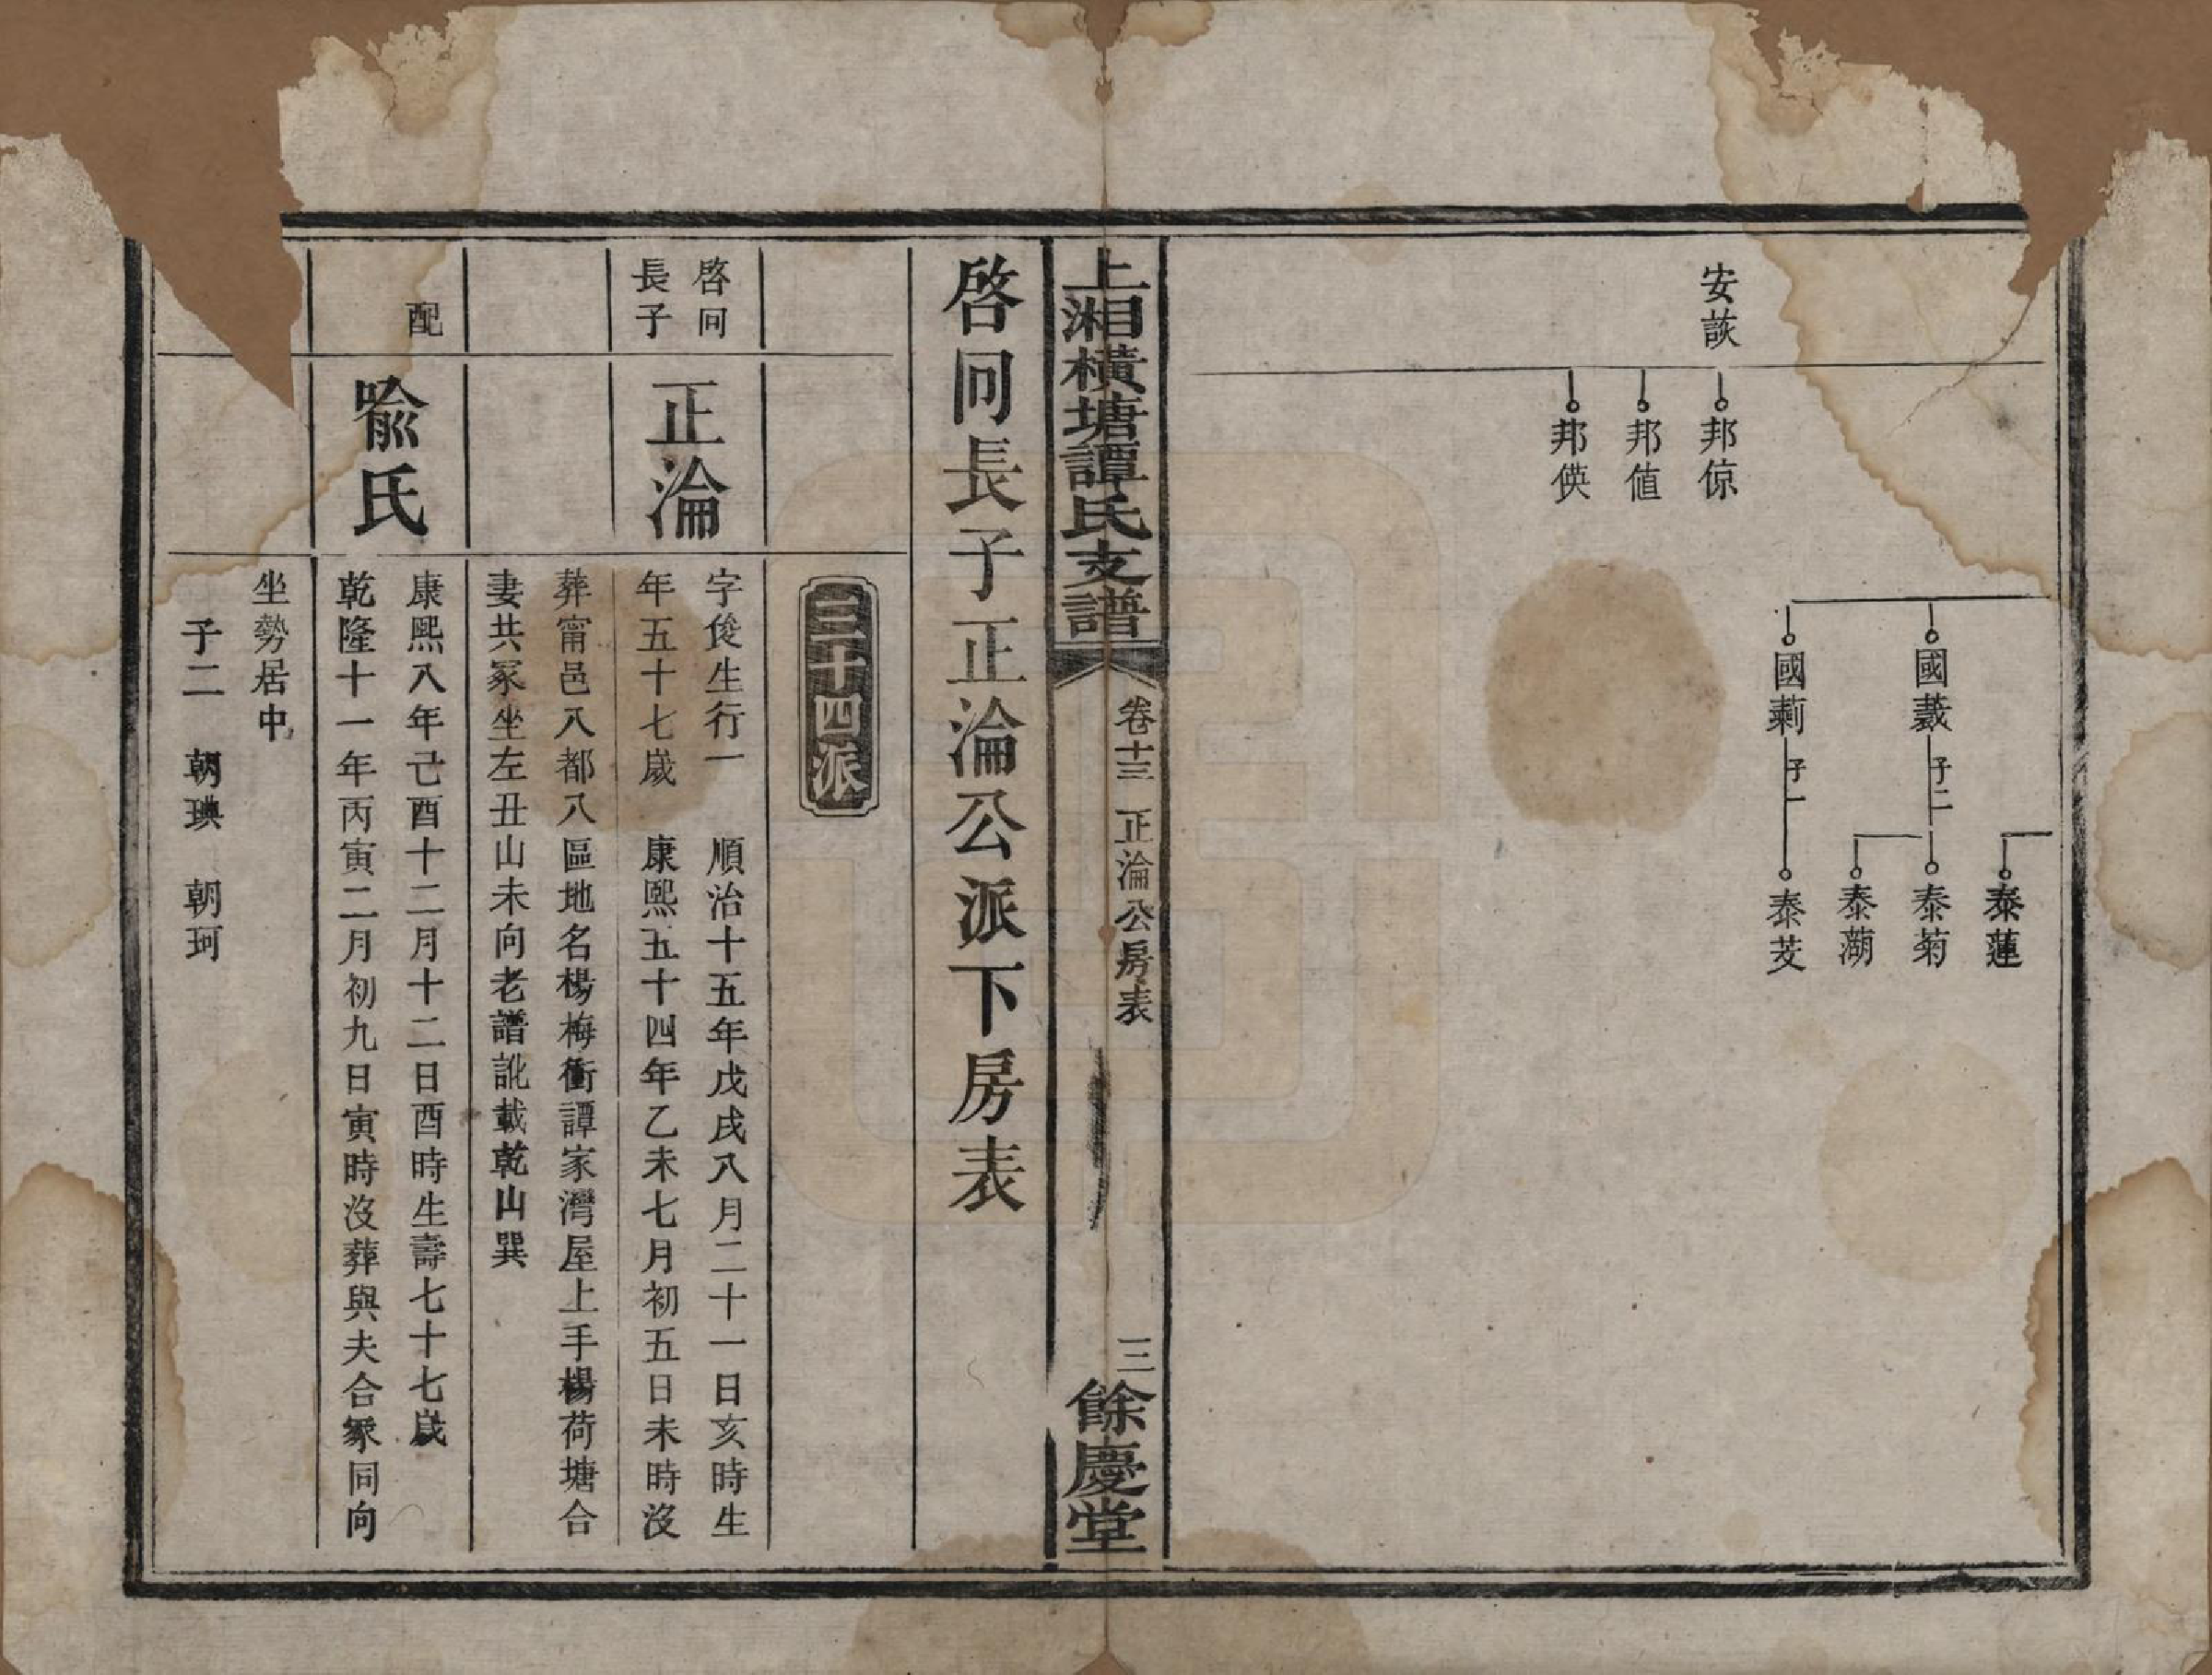 安詼
邦倞
邦值
邦偀
國蕺
子二
國莿
子一
泰蓮
泰菊
泰萠
泰芨
上湘橫塘譚氏支譜
卷十三 正淪公房表
三
餘慶堂
啓同長子正淪公派下房表
三十四派
啓同
長子
正淪
字俊生行一 順治十五年戊戌八月二十一日亥時生
年五十七歲 康熙五十四年乙未七月初五日未時沒
葬甯邑八都八區地名楊梅衝譚家灣屋上手楊荷塘合
妻共冢坐左丑山未向老譜訛載乾山巽
配
喩氏
康熙八年己酉十二月十二日酉時生壽七十七歲
乾隆十一年丙寅二月初九日寅時沒葬與夫合冢同向
坐勢居中
子二 朝璵 朝珂